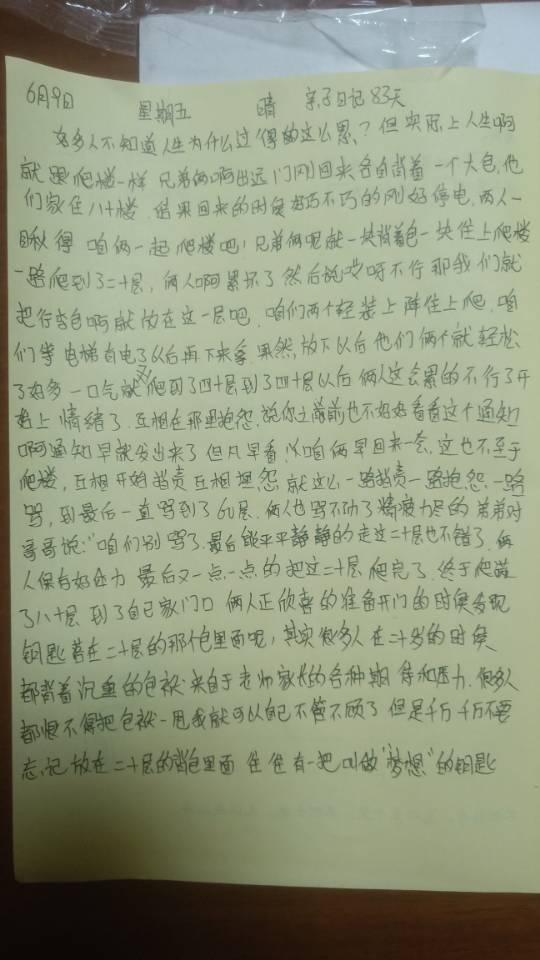 6月9日 星期五 晴 亲子日记83天
好多人不知道人生为什么过得的这么累？但实际上人生啊
就跟爬楼一样 兄弟俩啊出远门刚回来各自背着一个大包，他
们家住八十楼，结果回来的时候好巧不巧的刚好停电，两人一
合计得 咱俩一起爬楼吧，兄弟俩呢就一块背着包一块往上爬楼
一路爬到了二十层，俩人啊累坏了然后说哎呀不行那我们就
把行李包啊就放在这一层吧，咱们两个轻装上阵往上爬，咱
们等电梯有电了以后再下来拿果然，放下以后他们俩个就轻松
了好多一口气就又爬到了四十层到了四十层以后俩人这会累的不行了开
始上情绪了，互相在那里抱怨，说你之前也不好好看看这个通知
啊通知早就发出来了但凡早看，咱俩早回来一会，这也不至于
爬楼，互相开始指责互相埋怨，就这么一路指责一路抱怨，一路
骂，到最后一直骂到了60层，俩人也骂不动了精疲力尽的弟弟对
哥哥说：“咱们别骂了，最后能平平静静的走过二十层也不错了，俩
人保存好体力 最后又一点一点的把这二十层爬完了，终于爬
了八十层 到了自己家门口 俩人正欣喜的准备开门的时候发现
钥匙落在二十层的那个包里面呢，其实很多人在二十岁的时候
都背着沉重的包袱来自于老师家长的各种期待和压力，很多人
都恨不得把包袱一甩我就可以自己不管不顾了但是千万千万不要
忘记放在二十层的背包里面往往有一把叫做“梦想”的钥匙